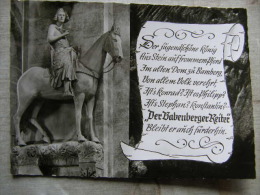 Der jugendschöne König
Aus Stein auf frommem Pferd
Im alten Dom zu Bamberg,
Von allem Volk verehrt.
Ist's Konrad? Ist es Philipp?
Ist's Stephan? Konstantin?
"Der Babenberger Reiter"
Bleibt er auch fürderhin.